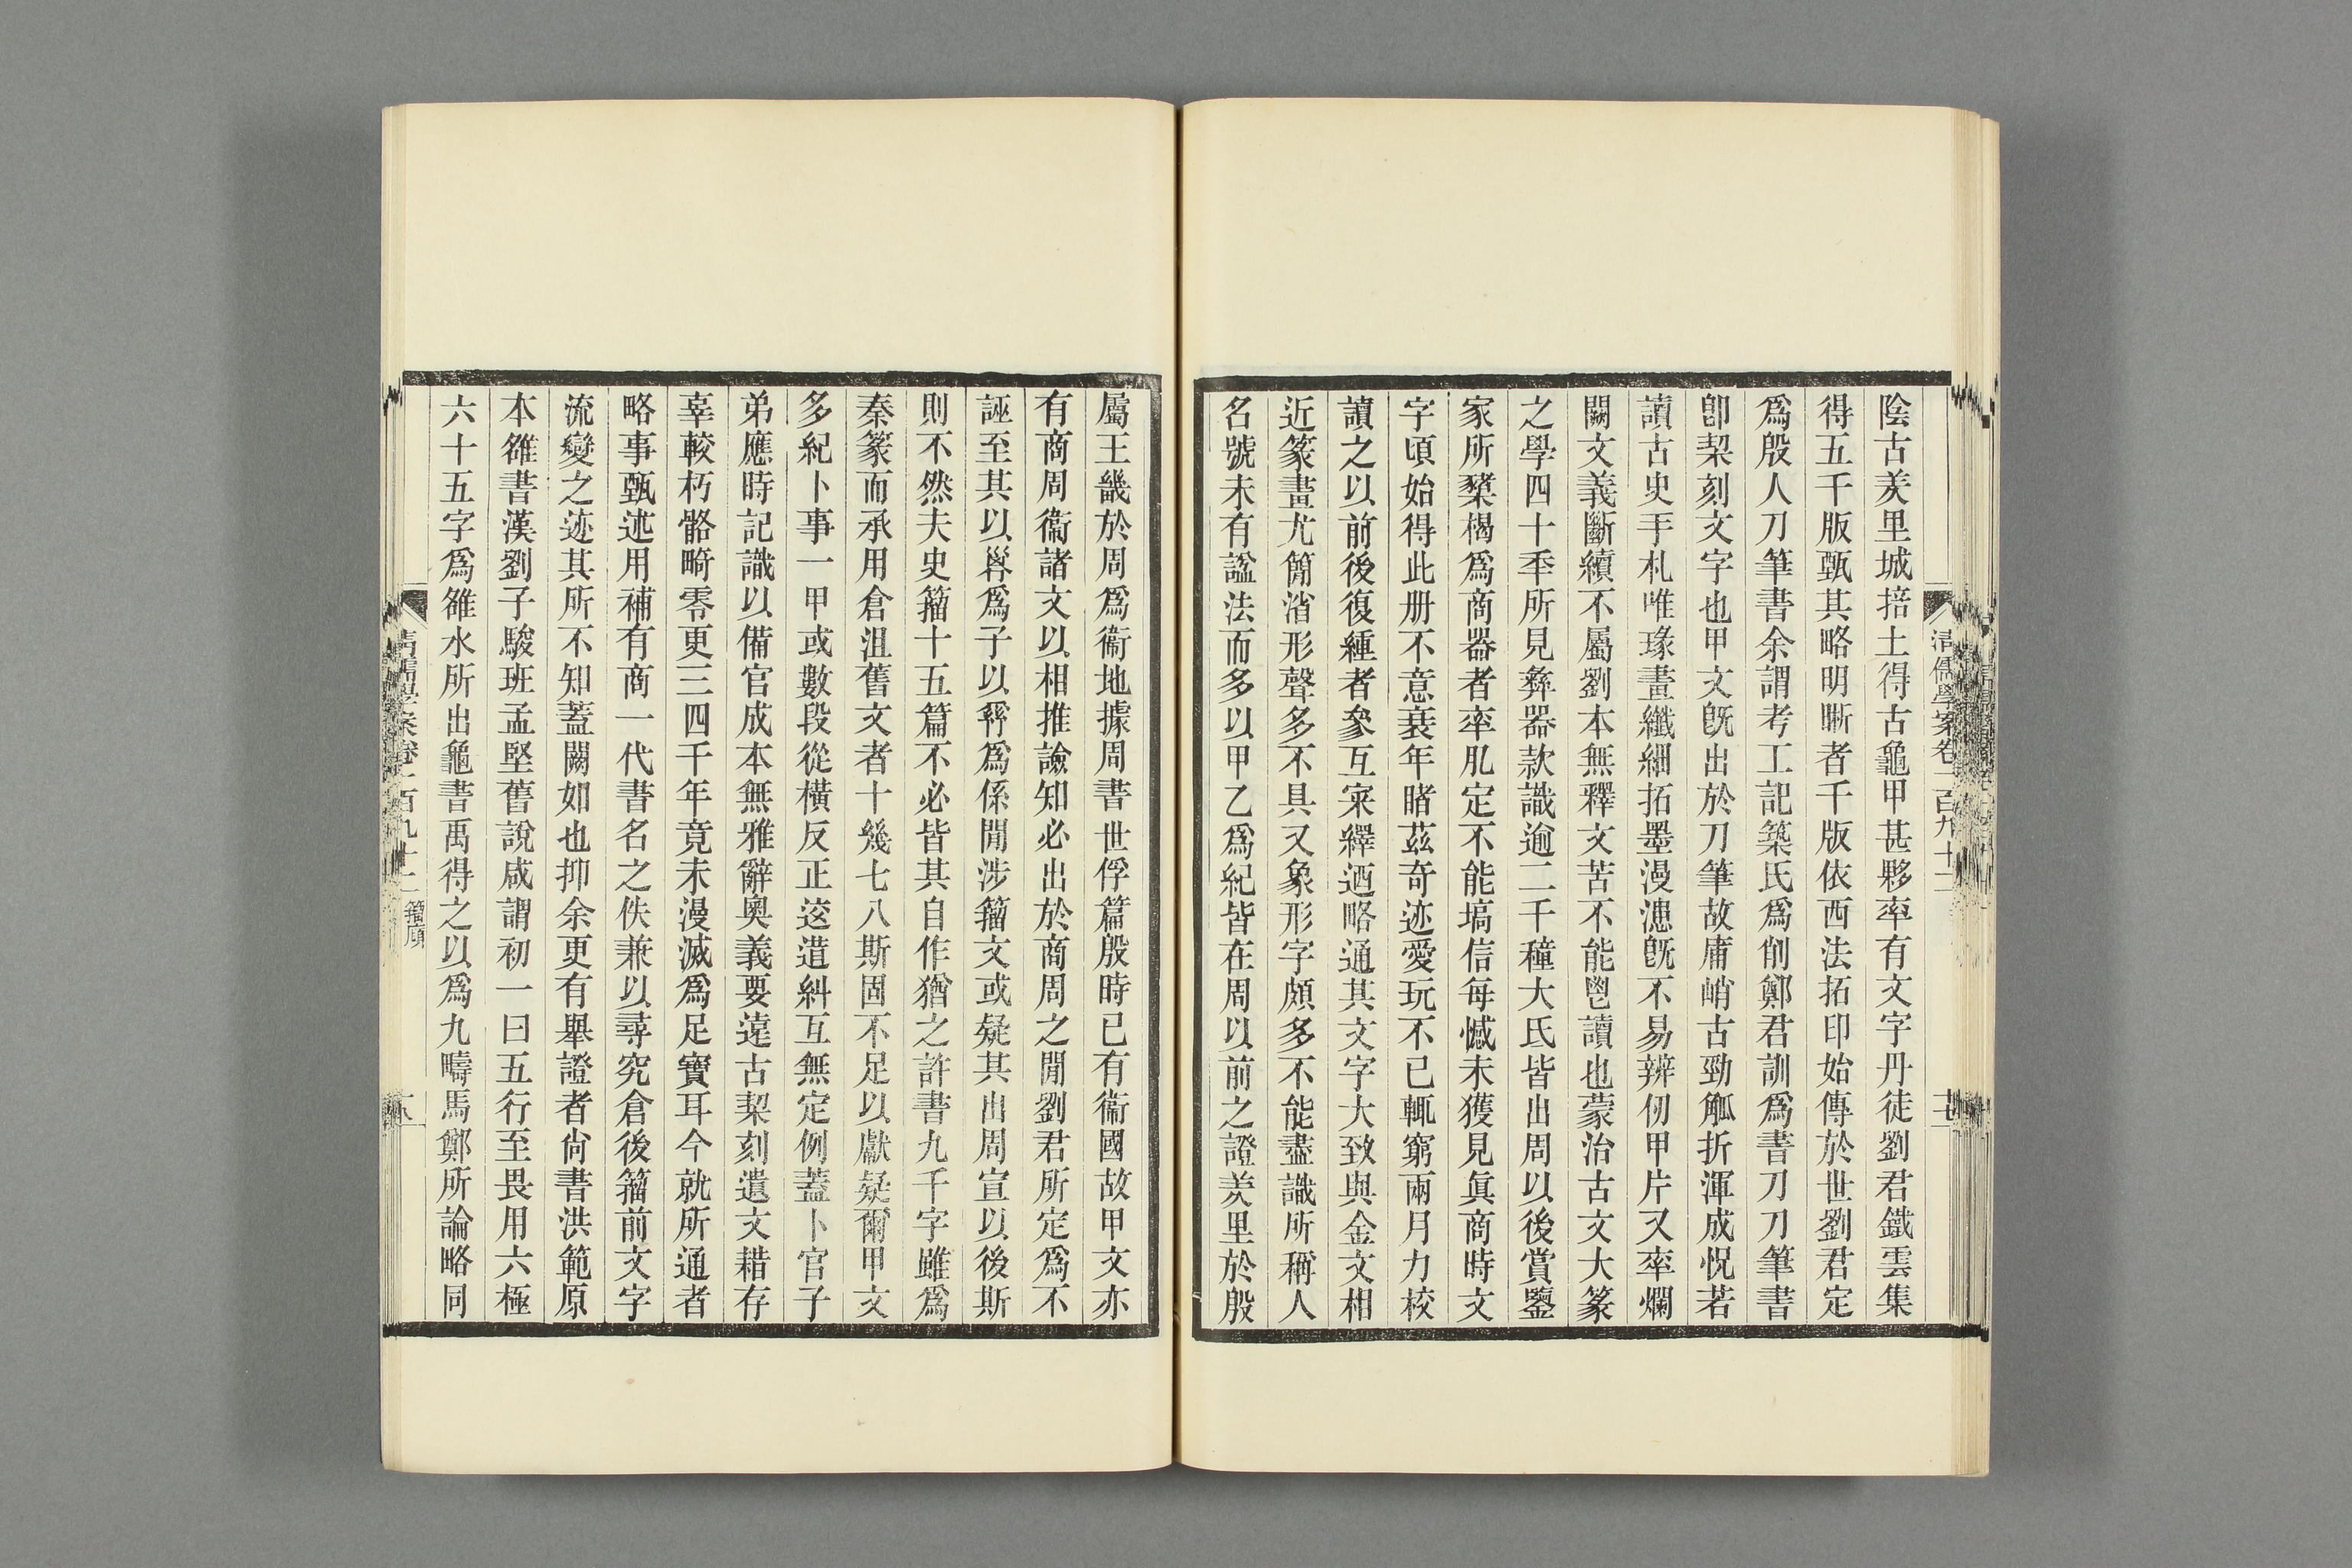 陰古羑里城掊土得古龜甲甚夥率有文字丹徒劉君鐵雲集
得五千版甄其略明晰者千版依西法拓印始傳於世劉君定
爲殷人刀筆書余謂考工記築氏爲削鄭君訓爲書刀刀筆書
卽栔刻文字也甲文旣出於刀筆故庸峭古勁觚折渾成怳若
讀古史手札唯瑑畫纖細拓墨漫漶旣不易辨仞甲片又率爛
闕文義斷續不屬劉本無釋文苦不能鬯讀也蒙治古文大篆
之學四十秊所見彝器款識逾二千種大氐皆出周以後賞鑒
家所櫫楬爲商器者率肊定不能塙信每憾未獲見眞商時文
字頃始得此册不意衰年睹茲奇迹愛玩不已輒窮兩月力校
讀之以前後復緟者參互寀繹迺略通其文字大致與金文相
近篆畫尤簡渻形聲多不具又象形字頗多不能盡識所稱人
名號未有諡法而多以甲乙爲紀皆在周以前之證羑里於殷
屬王畿於周爲衞地據周書世俘篇殷時已有衞國故甲文亦
有商周衞諸文以相推譣知必出於商周之閒劉君所定爲不
誣至其以爲子以爲係閒涉籀文或疑其出周宣以後斯
則不然夫史籀十五篇不必皆其自作猶之許書九千字雖爲
秦篆而承用倉沮舊文者十幾七八斯固不足以獻疑爾甲文
多紀卜事一甲或數段從橫反正迻遺糾互無定例蓋卜官子
弟應時記識以備官成本無雅辭奧義要遠古栔刻遺文耤存
辜較朽骼畸零更三四千年竟未漫滅爲足寶耳今就所通者
略事甄述用補有商一代書名之佚兼以尋究倉後籀前文字
流變之迹其所不知蓋闕如也抑余更有舉證者尙書洪範原
本雒書漢劉子駿班孟堅舊說咸謂初一曰五行至畏用六極
六十五字爲雒水所出龜書禹得之以爲九疇馬鄭所論略同
清儒學案卷一百九十二
清儒學案卷一百九十二 籀廎